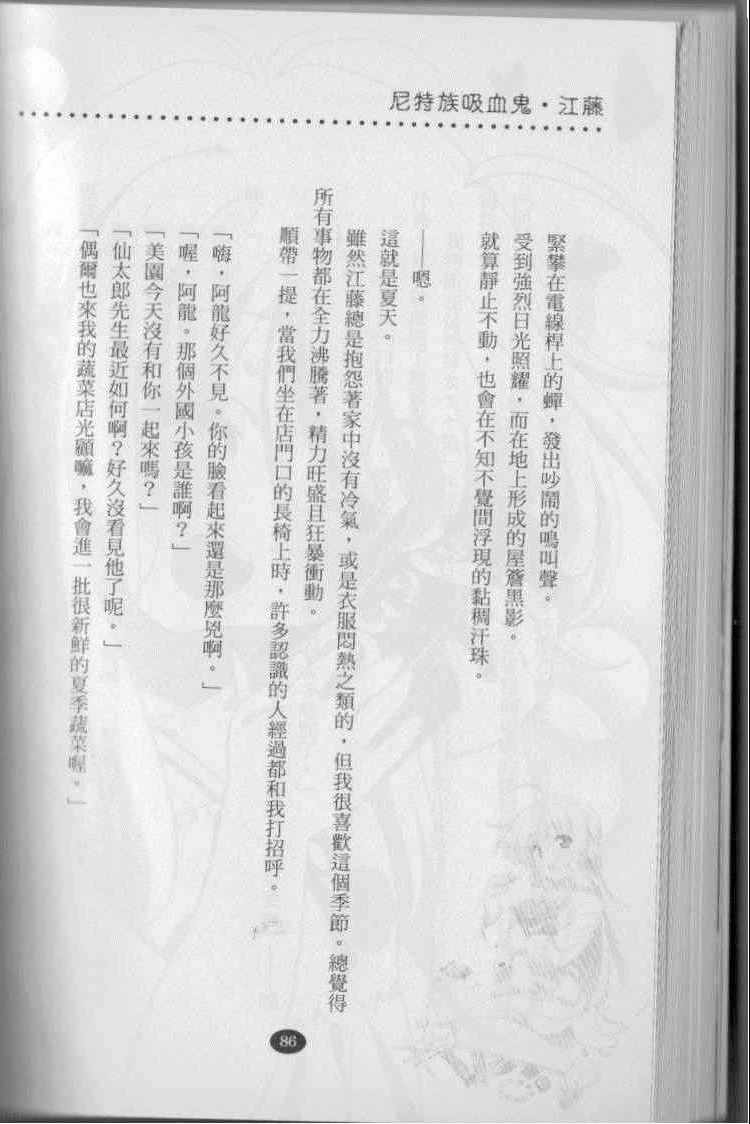 尼特族吸血鬼・江藤
緊攀在電線桿上的蟬，發出吵鬧的鳴叫聲。
受到強烈日光照耀，而在地上形成的屋簷黑影。
就算靜止不動，也會在不知不覺間浮現的黏稠汗珠。
——嗯。
這就是夏天。
雖然江藤總是抱怨著家中沒有冷氣，或是衣服悶熱之類的，但我很喜歡這個季節。總覺得
所有事物都在全力沸騰著，精力旺盛且狂暴衝動。
順帶一提，當我們坐在店門口的長椅上時，許多認識的人經過都和我打招呼。
「嗨，阿龍好久不見。你的臉看起來還是那麼兇啊。」
「喔，阿龍。那個外國小孩是誰啊？」
「美園今天沒有和你一起來嗎？」
「仙太郎先生最近如何啊？好久沒看見他了呢。」
「偶爾也來我的蔬菜店光顧嘛，我會進一批很新鮮的夏季蔬菜喔。」
86